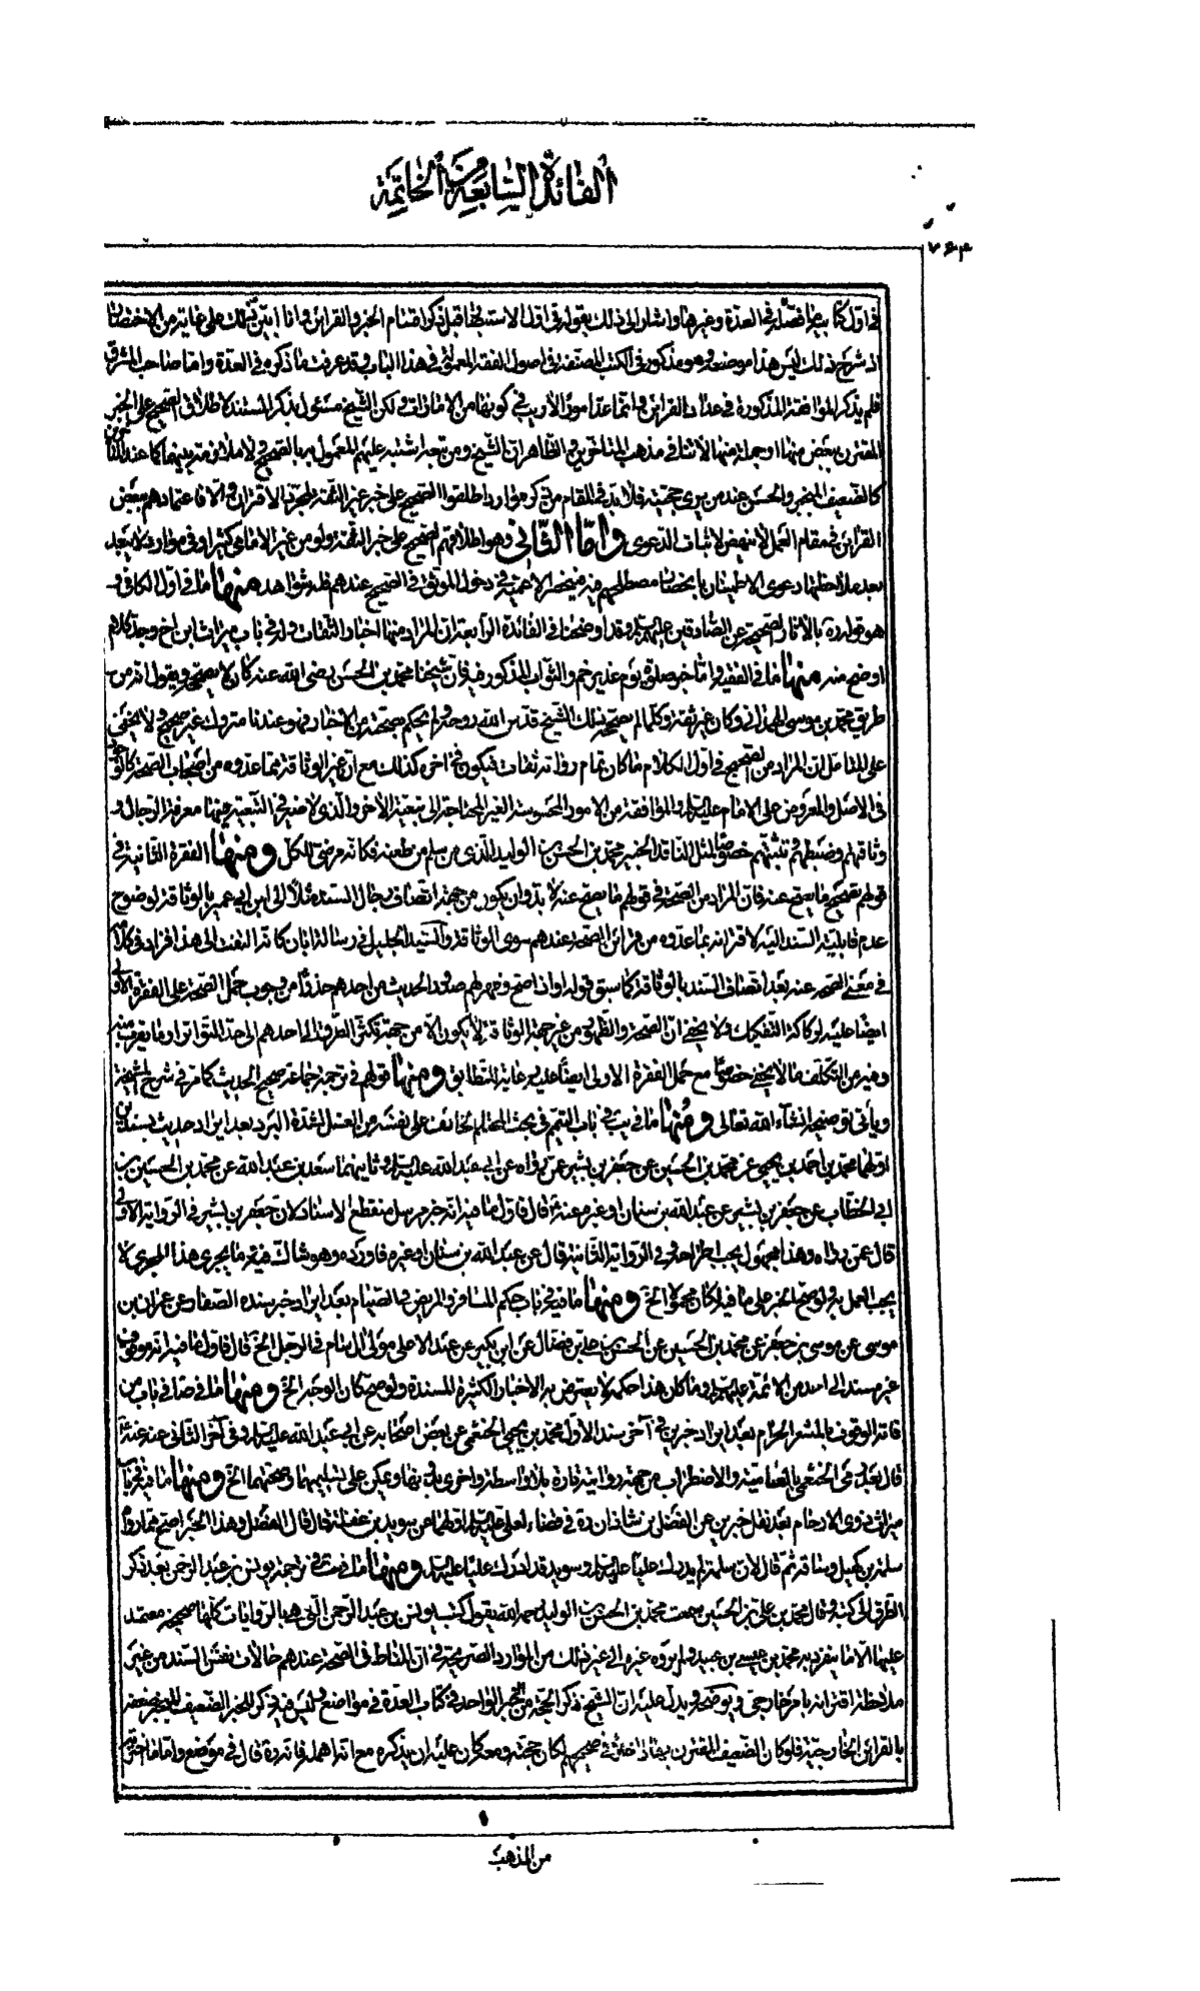 الفائدة السابعة من الخاتمة
٧٦٤
في اول كتابيه ما فصله في العدة وغيرها واشار الى ذلك بقوله في اول الاستبصار قبل ذكر اقسام الخبر والقرائن وانا ابين ذلك على غاية من الاختصار
اذ شرح ذلك ليس هذا موضعه وهو مذكور في الكتب المصنفة في اصول الفقه المعمولة في هذا الباب وقد عرفت ما ذكره في العدة واما صاحب المشرق
فلم يذكر الموافقة المذكورة في عداد القرائن وانما عد امورا لا ريب في كونها من الامارات ولكن الشيخ مسئول بذكر المستند لاطلاق الصحيح على الخبر
المقترن ببعض منها او جملة منها الا
كالضعيف المنجبر والحسن عند من يرى حجيته فلا بد في المقام من ذكر موارد اطلقوا الصحيح على خبر غير الثقة لمجرد الاقتران والا فاعتمادهم ببعض
القرائن في مقام العمل لا ينهض لاثبات الدعوى واما الثاني وهو اطلاقهم الصحيح على خبر الثقة ولو من غير الامامي كثيرا وفي موارد لا يبعد
بعد ملاحظتها دعوى الاطمينان بانحصار مصطلحهم فيه فيخص الاعمية في دخول الموثق في الصحيح عندهم فله شواهد منها ما في اول الكافي
هو قوله ره بالاثار الصحيحة عن الصادقين عليهم السلام وقد اوضحنا في الفائدة الرابعة ان المراد منها اخبار الثقات وله في باب ميراث ابن اخ وجد كلام
اوضح منه منها ما في الفقيه واما خبر صلوة يوم غدير خم والثواب المذكور فيه فان شيخنا محمد بن الحسن رضى الله عنه كان لا يصححه ويقول انه من
طريق محمد بن موسى الهمداني وكان غير ثقة وكلما لم يصححه ذلك الشيخ قدس الله روحه ولم يحكم بصحته من الاخبار فهو عندنا متروك غير صحيح ولا يخفى
على المتأمل ان المراد من الصحيح في اول الكلام ما كان تمام رواته ثقات فيكون في اخره كذلك مع ان غير الوثاقة مما عدوه من اسباب الصحة كالوجود
في الاصل والمعروض على الامام عليه السلام والموافقة من الامور المحسوسة الغير المحتاجة الى تبعية الاخر والذي لا ضير في التبعية فيها معرفة الرجال و
وثاقتهم وضبطهم وتثبتهم خصوصا لمثل الناقد الخبير محمد بن الحسن بن الوليد الذي من سلم من طعنه فكانه مرضى الكل ومنها الفقرة الثانية في
قولهم تصحيح ما يصح عنه فان المراد من الصحة في قولهم ما يصح عنه لا بد وان يكون من جهة اتصاف رجال السند مثلا الى ابن ابي عمير بالوثاقة لوضوح
عدم قابلية السند اليه لاقترانه بما عدوه من قرائن الصحة عندهم سوى الوثاقة والسيد الجليل في رسالة ابان كانه التفت الى هذا فزاد في كلامه
في معنى الصحة عنه بعد اتصاف السند بالوثاقة كما سبق قوله او اذا صح وظهر لهم صدور الحديث من احدهم حذرا من وجوب حمل الصحة على الفقرة الاولى
ايضا عليه لركاكة التفكيك ولا يخفى ان الصحة والظهور من غير جهة الوثاقة لا يكون الا من جهة تكثر الطرق الى احدهم الى حد التواتر او ما يقرب منه
وفيه من التكلف ما لا يخفى خصوصا مع حمل الفقرة الاولى ايضا عليه رعاية للتطابق ومنها قولهم في ترجمة جماعة صحيح الحديث كما مر في شرح المشيخة
وياتي توضيحه انشاء الله تعالى ومنها ما في يب في باب التيمم في بحث المحتلم الخائف على نفسه من الغسل لشدة البرد بعد ايراد حديث بسندين
اولهما محمد بن احمد بن يحيى عن محمد بن الحسين عن جعفر بن بشير عمن رواه عن ابي عبد الله عليه السلام وثانيهما سعد بن عبد الله عن محمد بن الحسين بن
ابي الخطاب عن جعفر بن بشير عن عبد الله بن سنان او غيره عنه ع قال فاول ما فيه انه خبر مرسل منقطع الاسناد لان جعفر بن بشير في الرواية الاولى
قال عمن رواه وهذا مجهول يجب اطراحه وفي الرواية الثانية قال عن عبد الله بن سنان او غيره فاورده وهو شاك فيه وما يجرى هذا المجرى لا
يجب العمل به ولو صح الخبر على ما فيه لكان محمولا الخ ومنها ما فيه في باب حكم المسافر والمريض في الصيام بعد ايراد خبر بسنده الصفار عن عمران بن
موسى عن موسى بن جعفر عن محمد بن الحسين عن الحسن بن علي بن فضال عن ابن بكير عن عبد الاعلى مولى ال سام في الرجل الخ قال فاول ما فيه انه موقوف
غير مسند الى احد من الائمة عليهم السلام وما كان هذا حكمه لا يعترض به الاخبار الكثيرة المسندة ولو صح كان الوجه الخ ومنها ما في صا في باب من
فاته الوقوف بالمشعر الحرام بعد ايراد خبرين في آخر سند الاول محمد بن يحيى الخثعمي عن بعض اصحابه عن ابي عبد الله عليه السلام وفي آخر الثاني عنه عنه ع
قال بعد رمى الخثعمي بالعامية والاضطراب من جهة روايته تارة بلا واسطة واخرى بها ويمكن على تسليمهما وصحتهما الخ ومنها ما فيه في باب
ميراث ذوى الارحام بعد نقل خبرين عن الفضل بن شاذان ره في قضاء لعلي عليه السلام اولهما عن سويد بن غفلة قال قال الفضل وهذا الخبر اصح مما رواه
سلمة بن كهيل وساقه ثم قال لان سلمة لم يدرك عليا عليه السلام وسويد قد ادرك عليا عليه السلام ومنها ما في ست في ترجمة يونس بن عبد الرحمن بعد ذكر
الطرق الى كتبه وقال محمد بن علي بن الحسين سمعت محمد بن الحسن بن الوليد رحمه الله يقول كتب يونس بن عبد الرحمن التي هي بالروايات كلها صحيحة معتمد
عليها الا ما ينفرد به محمد بن عيسى بن عبيد ولم يروه غيره الى غير ذلك من الموارد الصريحة في ان المناط في الصحة عندهم حالات نفس السند من غير
ملاحظة اقترانه بامر خارجي ويوضحه ويدل عليه ان الشيخ ذكر الحجة من الخبر الواحد في كتاب العدة في مواضع وليس فيه ذكر للخبر الضعيف المنجبر ضعفه
بالقرائن الخارجية فلو كان الضعيف المقترن بها داخلا في صحيحهم لكان حجة ومعه كان عليه ان يذكره مع انه اهمله فانه ره قال في موضع واما ما اخترته
من المذهب